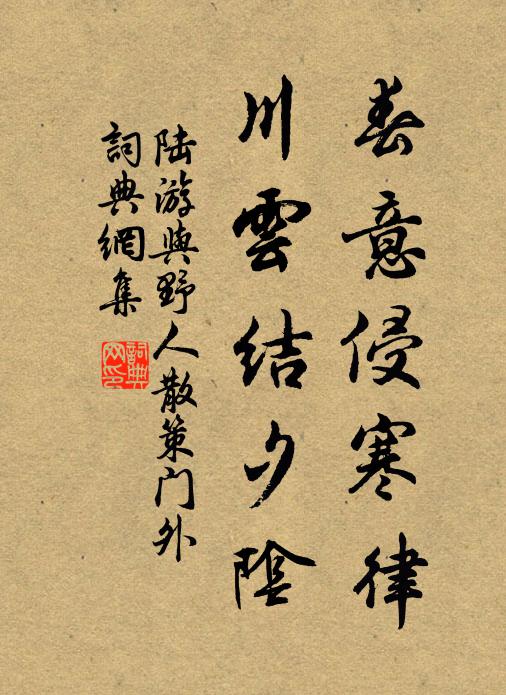 春意侵寒律
川雲結夕陰
陆游與野人散策门外
詞典網集
詞典网印